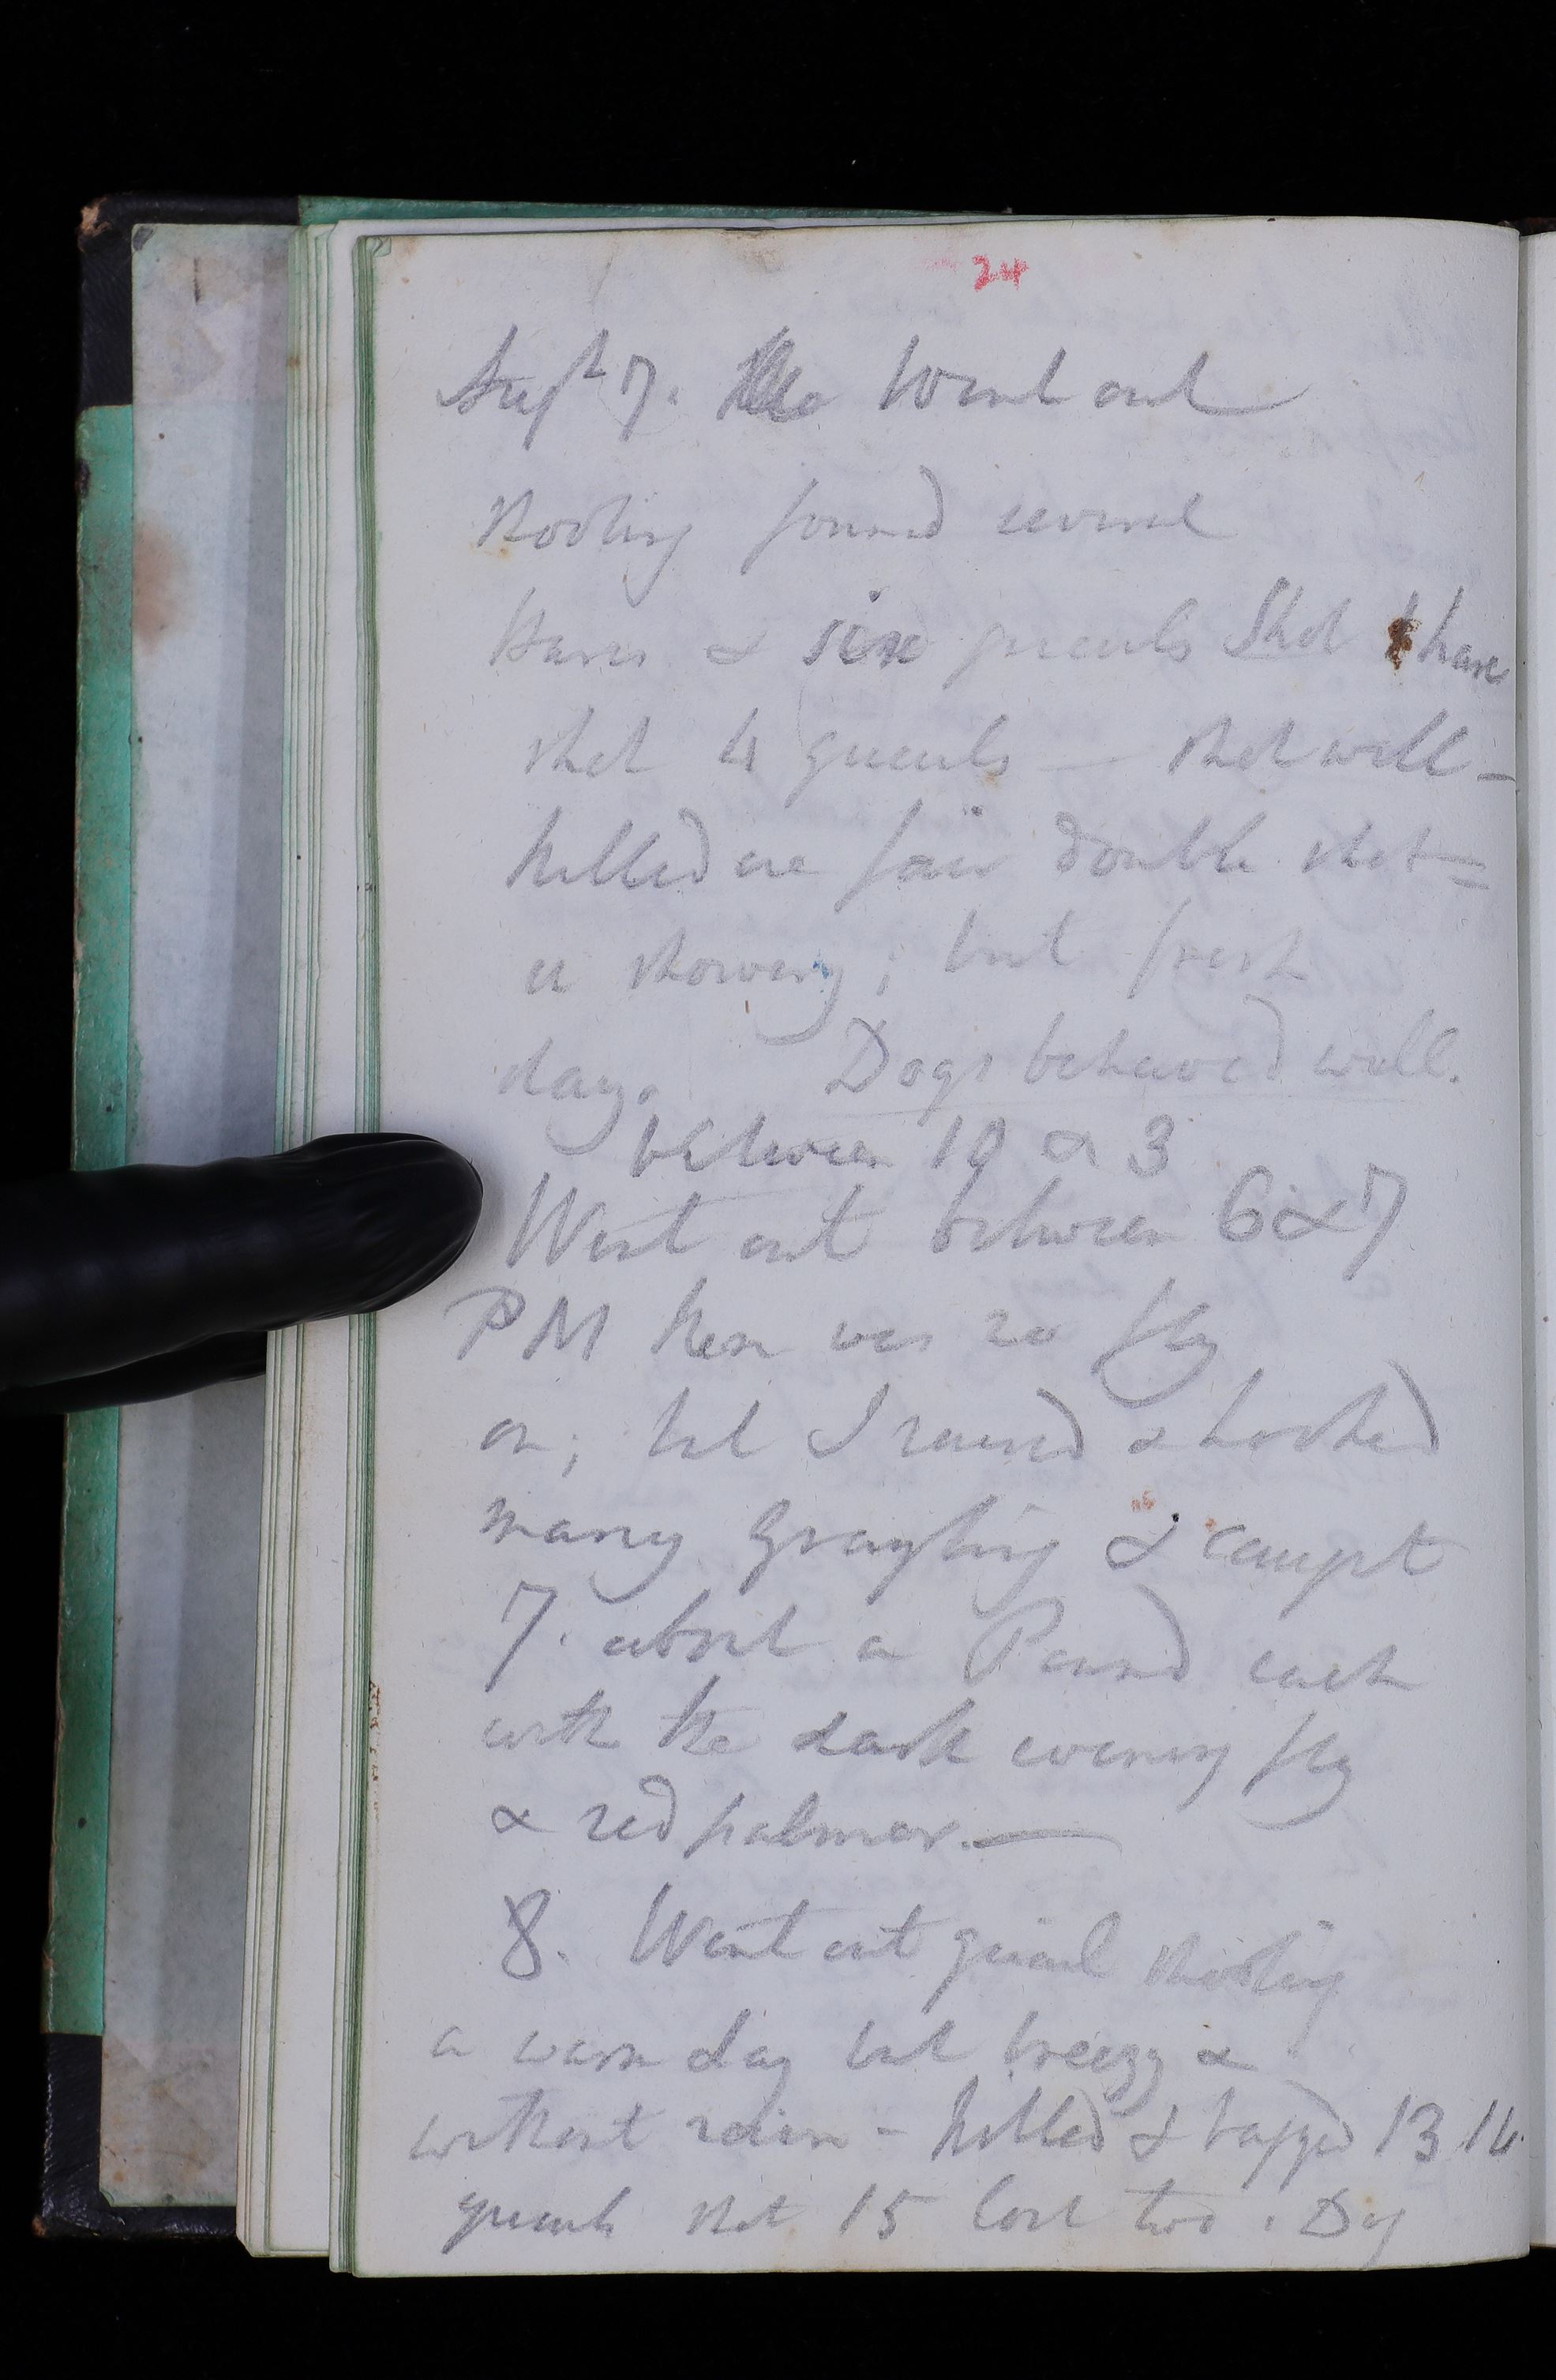 24
Sept 7. Went out
shooting found several
Hares & six quails Shot 1 hare
shot 4 quails — shot well —
killed one fair double shot =
a showery; but fresh
day. Dogs behaved well.
between 10 & 3
Went out between 6 & 7
PM there was no fly
on; but I raised & hooked
many Grayling & caught
7. about a Pound each
with the dark evening fly
& red palmer. —
8. Went out quail shooting
a warm day but breezy &
without rain - killed & bagged 13
quails shot 15 lost two. Dog